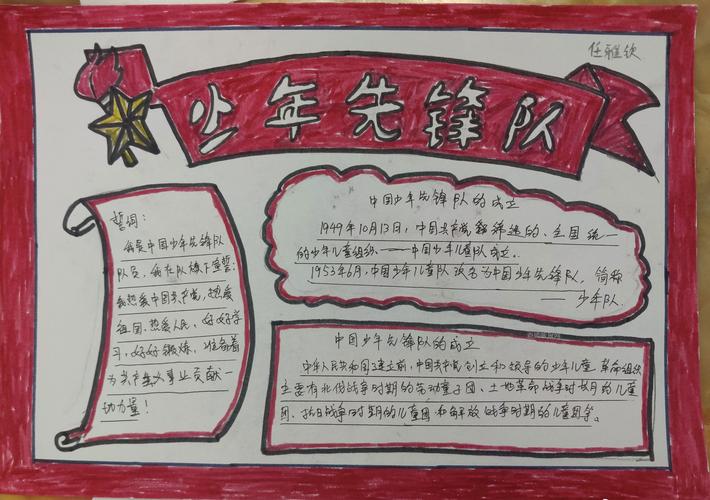 任雅欣
少年先锋队
誓词:
我是中国少年先锋队
队员,我在队旗下宣誓:
我热爱中国共产党,热爱
祖国,热爱人民,好好学
习,好好锻炼,准备着
为共产主义事业贡献一
切力量!
中国少年先锋队的成立
1949年10月13日,中国共产党缔造的、全国统一
的少年儿童组织——中国少年儿童队成立。
1953年6月,中国少年儿童队改名为中国少年先锋队,简称
——少年队.
中国少年先锋队的成立
中华人民共和国建立前,中国共产党创立和领导的少年儿童革命组织
主要有北伐战争时期的劳动童子团、土地革命战争时期的儿童
团、抗日战争时期的儿童团和解放战争时期的儿童团等。